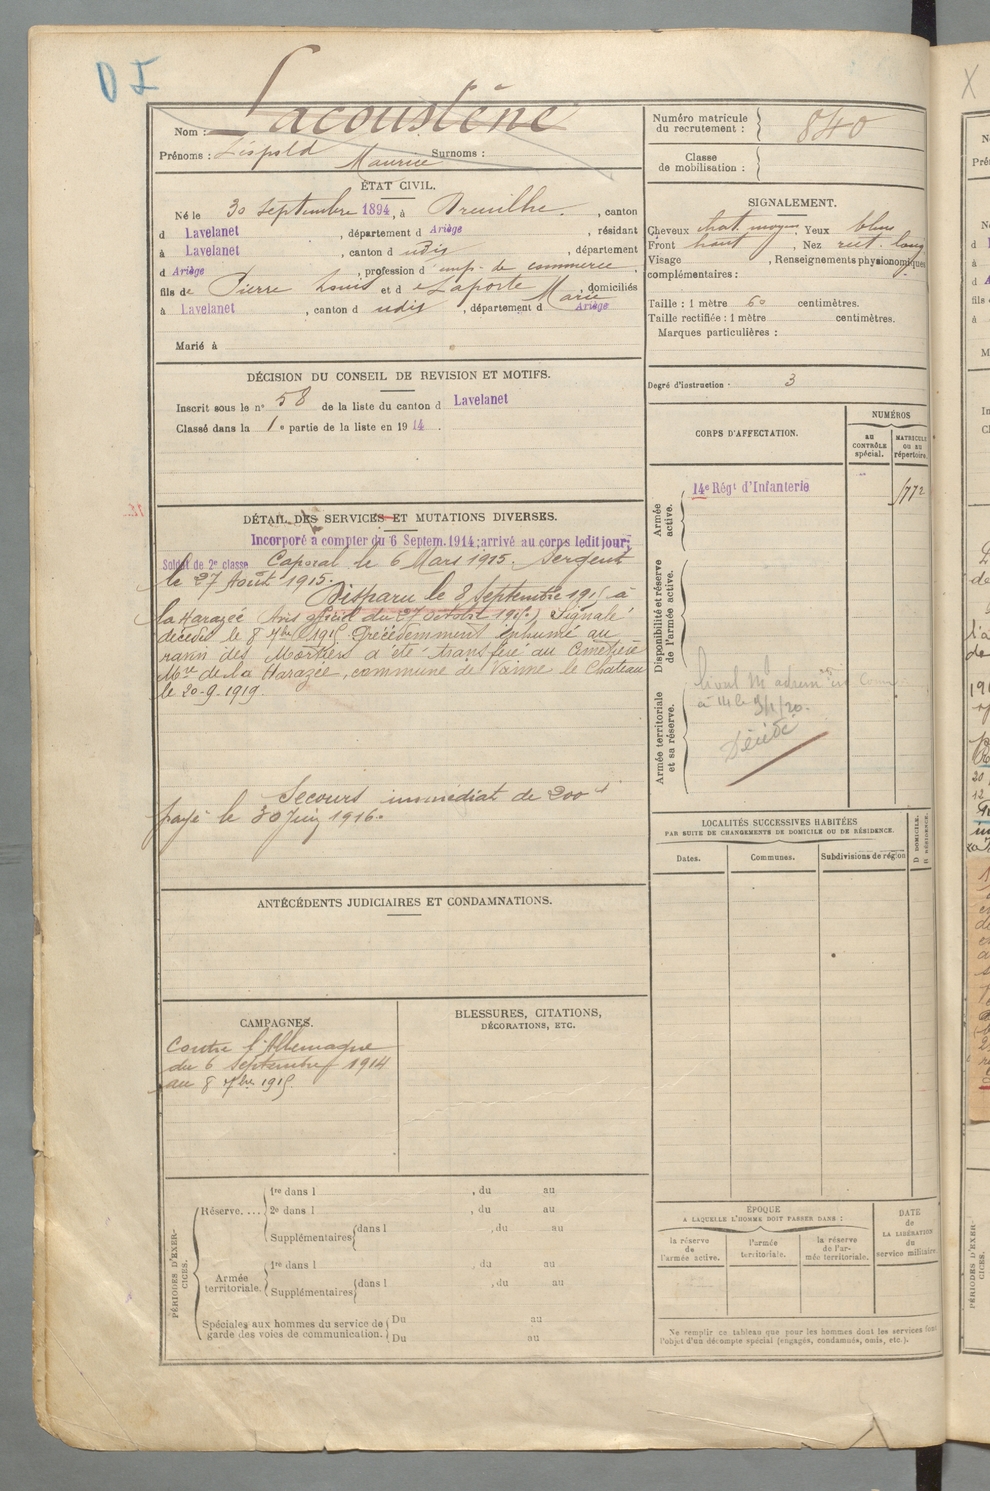 DI
Nom : Lacoustène
Prénoms : Léopold Maurice Surnoms :
ÉTAT CIVIL.
Né le 30 Septembre 1894, à Dreuilhe, canton
d Lavelanet, département d Ariège, résidant
à Lavelanet, canton d udis, département
d Ariège, profession d emp. de commerce,
fils de Pierre Louis et d e Laporte Marie, domiciliés
à Lavelanet, canton d udis, département d Ariège
Marié à
DÉCISION DU CONSEIL DE REVISION ET MOTIFS.
Inscrit sous le n° 58 de la liste du canton d Lavelanet
Classé dans la 1e partie de la liste en 1914.
DÉTAIL DES SERVICES ET MUTATIONS DIVERSES.
Incorporé à compter du 6 Septem. 1914; arrivé au corps ledit jour;
Soldat de 2e classe Caporal le 6 Mars 1915. Sergent
le 27 Août 1915.
Disparu le 8 Septembre 1915 à
la Harazée Avis officiel du 27 octobre 1915. Signalé
décédé le 8 7bre 1915 Précédemment inhumé au
ravin des Mortiers a été transféré au Cimetière
Mre de la Harazée, commune de Vienne le Chateau
le 20-9-1919.
Secours immédiat de 200 f
payé le 30 Juin 1916.
ANTÉCÉDENTS JUDICIAIRES ET CONDAMNATIONS.
CAMPAGNES.
Contre l'Allemagne
du 6 Septembre 1914
au 8 7bre 1915
BLESSURES, CITATIONS,
DÉCORATIONS, ETC.
PÉRIODES D'EXERCICES.
Réserve....
1re dans l , du au
2e dans l , du au
Supplémentaires dans l , du au
Armée territoriale.
1re dans l , du au
Supplémentaires dans l , du au
Spéciales aux hommes du service de
garde des voies de communication.
Du au
Du au
Numéro matricule
du recrutement : 840
Classe
de mobilisation :
SIGNALEMENT.
Cheveux chat. moyen, Yeux bleus
Front haut, Nez rect. long
Visage , Renseignements physionomiques
complémentaires :
Taille : 1 mètre 60 centimètres.
Taille rectifiée : 1 mètre centimètres.
Marques particulières :
Degré d'instruction · 3
CORPS D'AFFECTATION.
NUMÉROS
AU CONTRÔLE spécial.
MATRICULE OU AU répertoire.
Armée active.
14e Régt d'Infanterie
1772
Disponibilité et réserve de l'armée active.
Armée territoriale et sa réserve.
à 14 le 3/1/20.
Décédé
LOCALITÉS SUCCESSIVES HABITÉES
PAR SUITE DE CHANGEMENTS DE DOMICILE OU DE RÉSIDENCE.
D DOMICILE.
R RÉSIDENCE.
Dates.
Communes.
Subdivisions de région
ÉPOQUE
A LAQUELLE L'HOMME DOIT PASSER DANS :
la réserve de l'armée active.
l'armée territoriale.
la réserve de l'armée territoriale.
DATE
de
LA LIBÉRATION
du
service militaire.
Ne remplir ce tableau que pour les hommes dont les services font
l'objet d'un décompte spécial (engagés, condamnés, omis, etc.).
X
PÉRIODES D'EXERCICES.